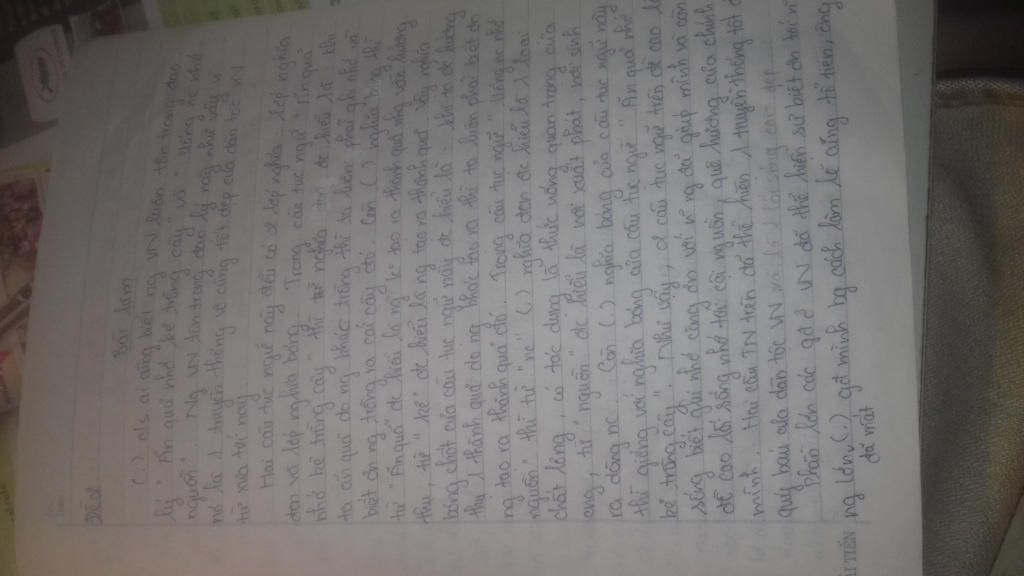 Đề 2:
Bài làm
(.) c/s ai cũng biết ng VN luôn tôn trọng đạo
lý " Ăn quả nhớ kẻ trồng cây" và " Uống nc nhớ
nguồn" Ng VN tôn trọng đạo lý này như vậy vì
nó là 1 truyền thống vô cùng tốt đẹp của dân tộc VN
từ xưa tới nay
Hai câu tục ngữ này đều có 2 lớp nghĩa - lớp nghĩa
đen và lớp nghĩa bóng. Trong câu tục ngữ " Ăn quả
nhớ kẻ trồng cây" thì nghĩa đen đc hiểu là : khi
ta ăn quả do ng khác trồng thì ta phải nghĩ nhớ và
biết ơn ng trồng ra cái cây đó. Còn (.) nghĩa bóng thì
từ " Ăn quả" đc hiểu là ng tạo ra thành quả nhưng vẫn hưởng
thụ, từ " kẻ" đc hiểu là ng tạo ra thành quả vậy nghĩa
bóng chốt của câu tục ngữ này đc hiểu là : khi ta đc hưởng
thụ 1 thành quả do ng khác tạo ra thì ta luôn phải biết ơn
ng tạo ra thành quả đó. Trong câu tục ngữ " Uống nc nhớ
nguồn" thì từ " nc" (.) nghĩa đen đc hiểu là 1 loại
chất lỏng, có tác dụng là thức uống quan trọng của
cng, từ " nguồn" đc hiểu là nơi xuất phát, nơi sinh
ra dòng nc. Còn (.) nghĩa bóng của câu tục ngữ này
thì giống với nghĩa bóng của câu tục ngữ " Ăn quả nhớ
kẻ trồng cây". Như vậy, 2 câu tục ngữ trên đề cao lối
sống biết ghi nhớ công ơn với ~ ng đã giúp mình và còn
đề cao lối sống nhớ tới cội nguồn, quê hương của chính
mình. Hai câu TN trên đã thể hiện 1 truyền thống tốt
quý báu của dân tộc VN
Phần lớn các gđ ở VN đã thể hiện sự biết ơn tới
ng lớn (.) gđ mình bg cách làm lễ cúng tổ tiên, ông
đã mất
ẢI TIẾN